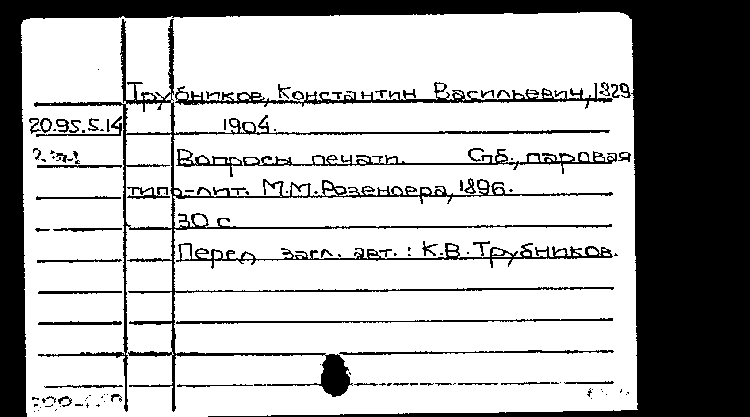 Трубников, Константин Васильевич, 1829-
20.95.5.14 1904.
2 экз Вопросы печати. Спб., паровая
типо-лит. М.М.Розеноера, 1896.
30 с.
Перед загл. авт.: К.В.Трубников.